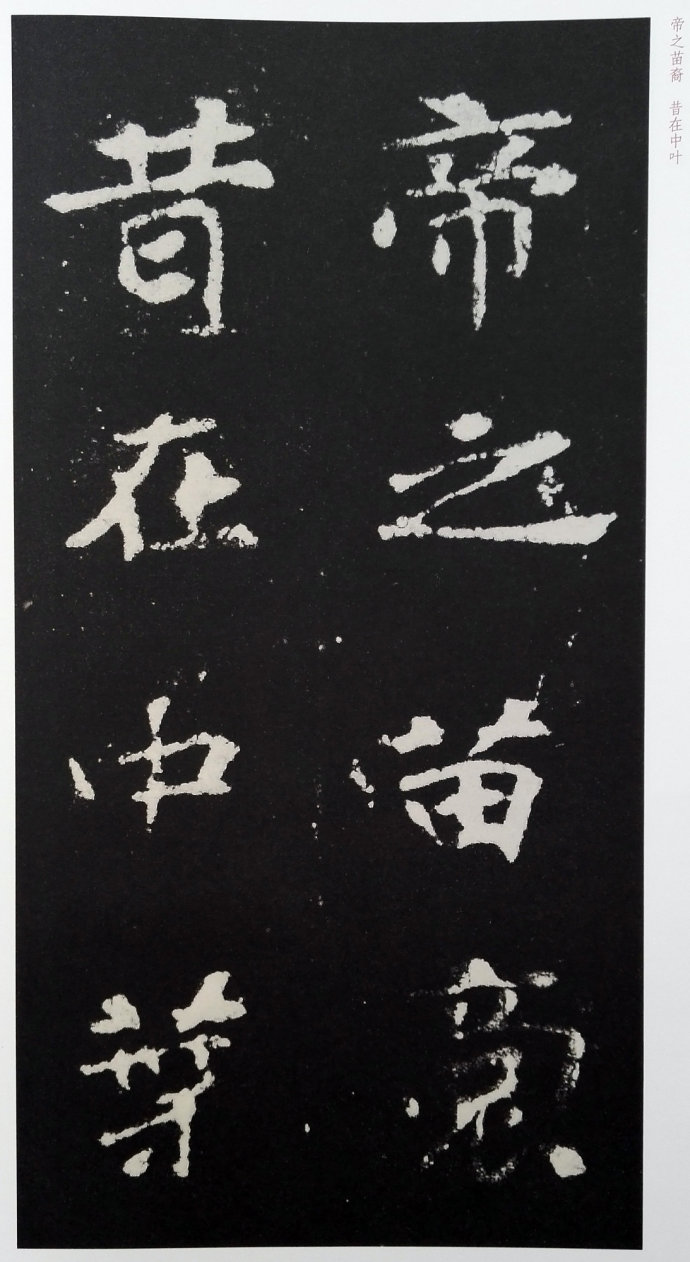 帝之苗裔 昔在中叶
帝之苗裔
昔在中葉